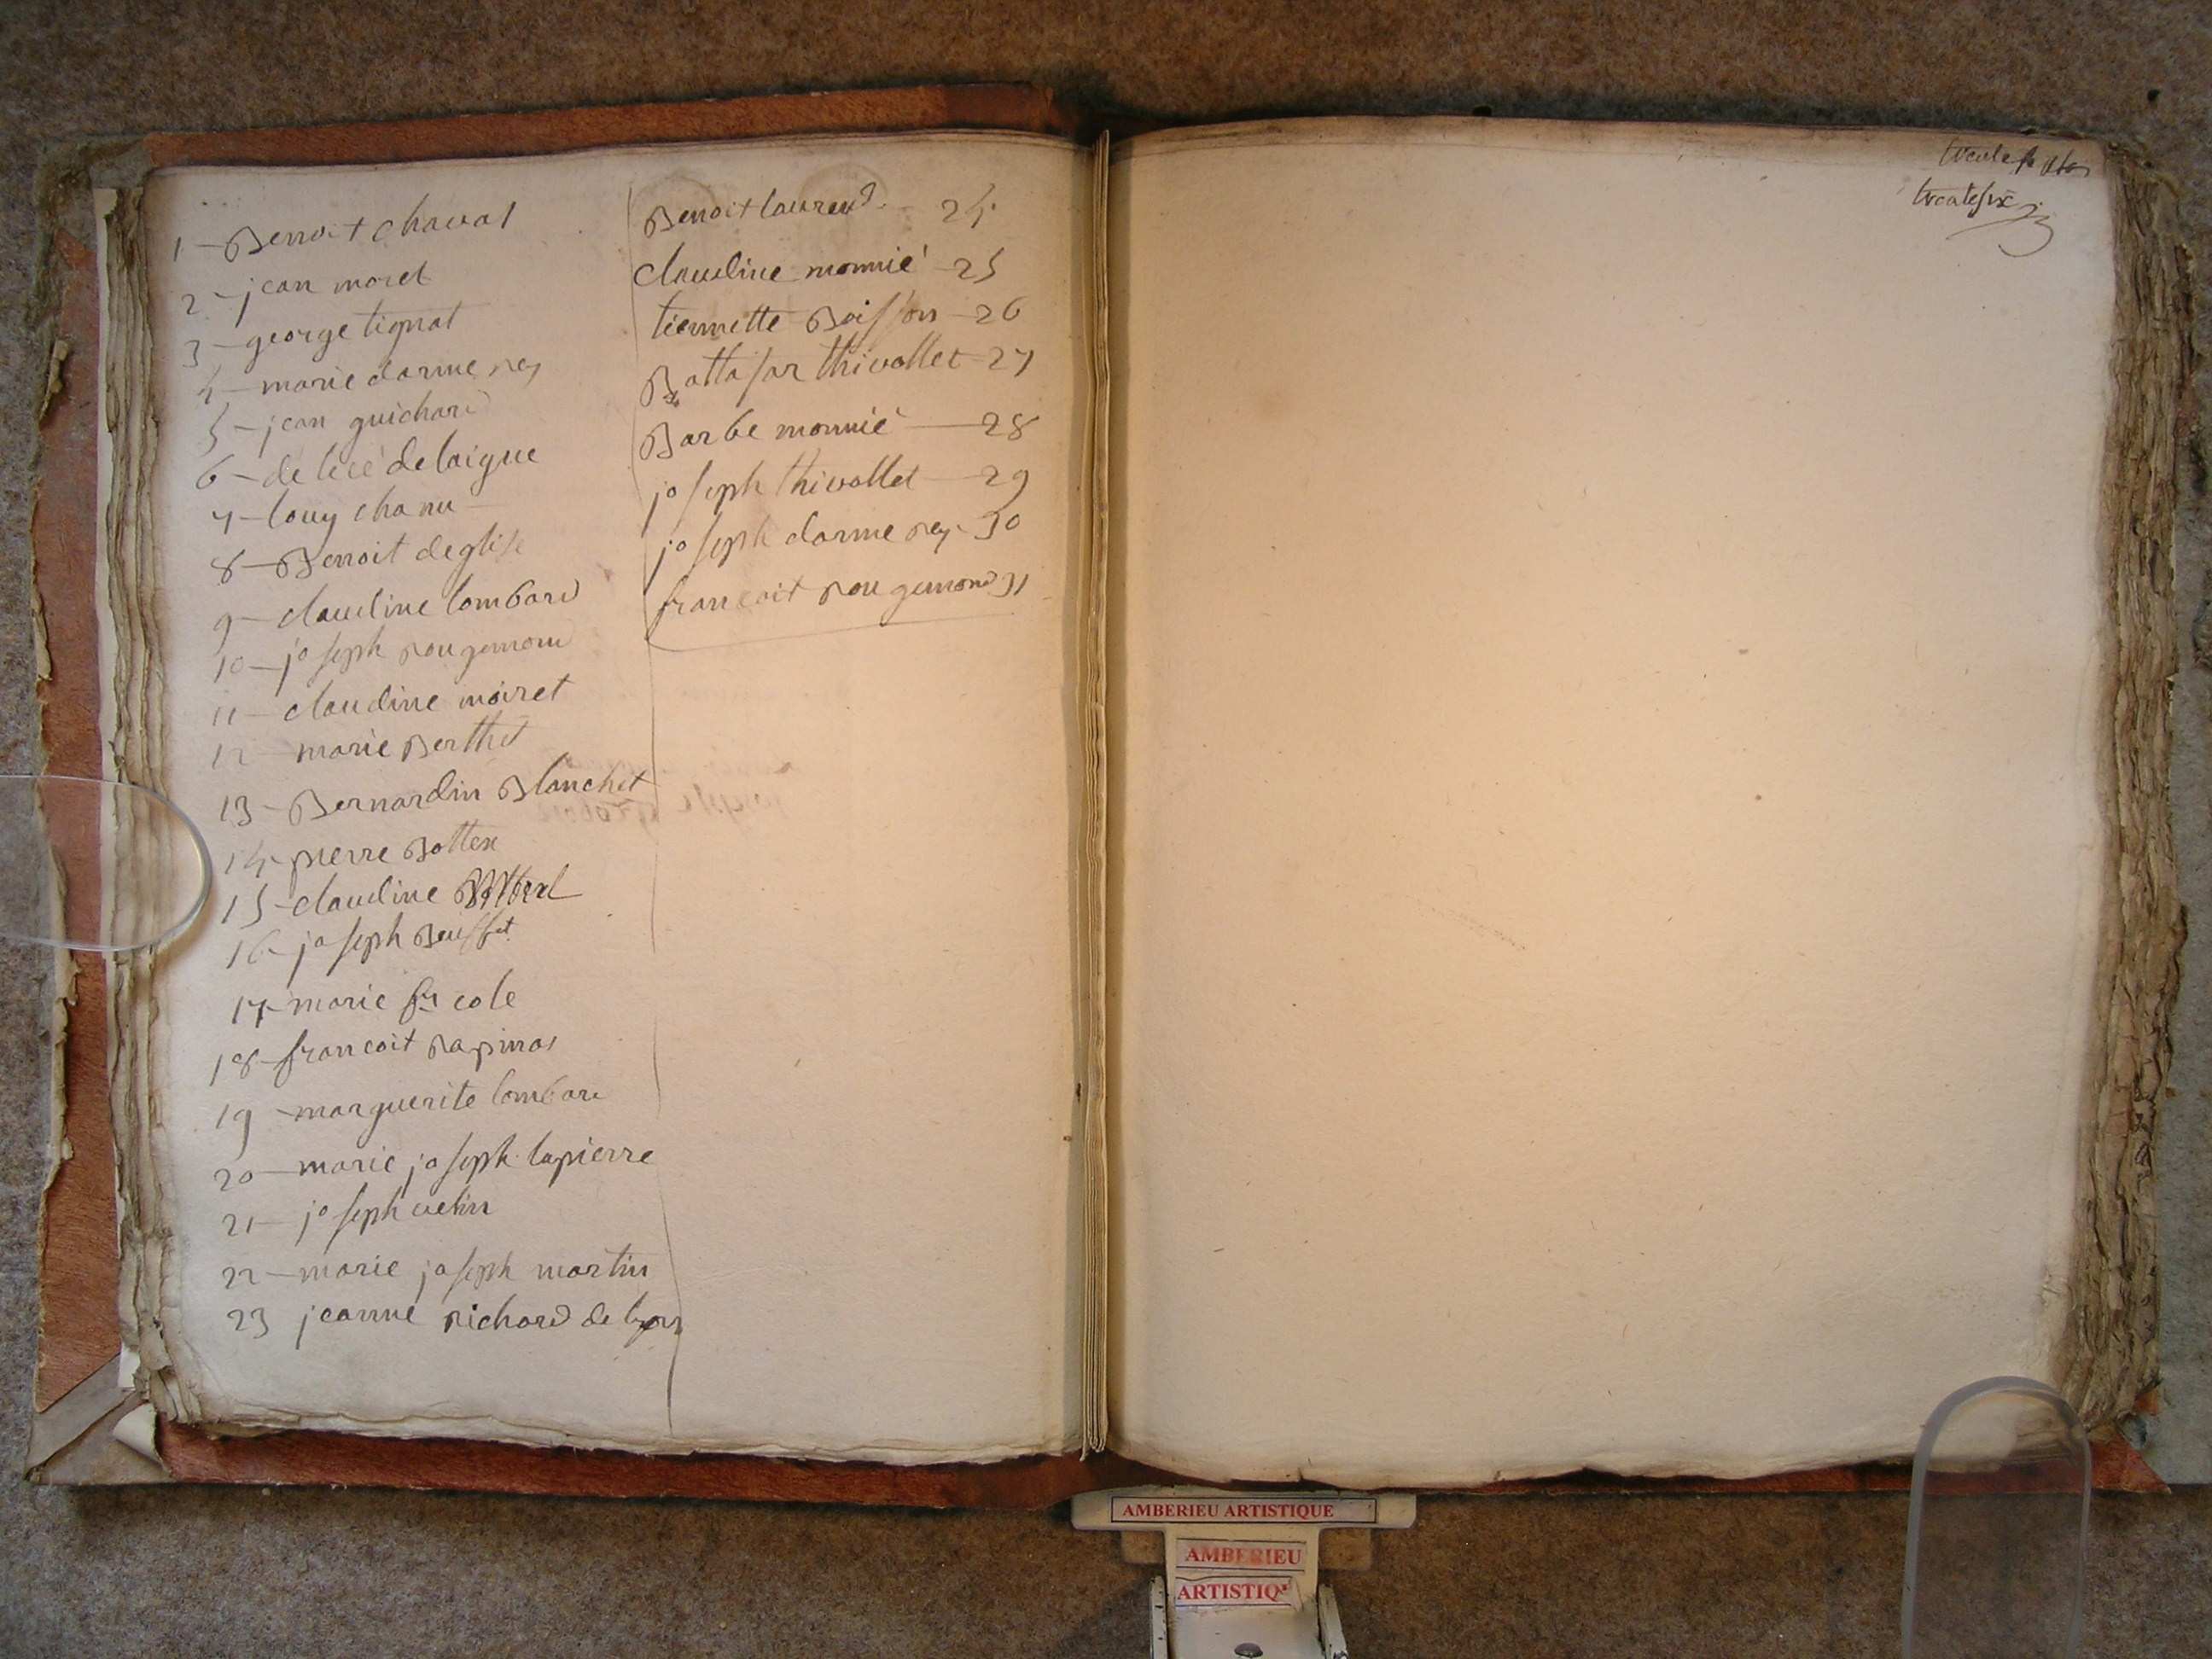 1 - Benoit chaval
2 - jean morel
3 - george tignat
4 - marie darmerey
5 - jean guichard
6 - delaigue
7 - louy chanu
8 - Benoit deglise
9 - claudine lombard
10 - joseph rougemond
11 - claudine moiret
12 - marie Berthet
13 - Bernardin Blanchet
14 - pierre Bottex
15 - claudine
16 - joseph
17 - marie cole
18 - francoit Rapinas
19 - marguerite lombard
20 - marie joseph lapierre
21 - joseph
22 - marie joseph martin
23 jeanne Richard de lyon
Benoit laurend - 24
claudine monnié - 25
tiennette Boisson - 26
Battasar thivollet - 27
Barbe monnié - 28
joseph thivollet - 29
joseph darmerey - 30
francoit Rougemond 31
trente
trente six
AMBERIEU ARTISTIQUE
AMBERIEU
ARTISTIQ